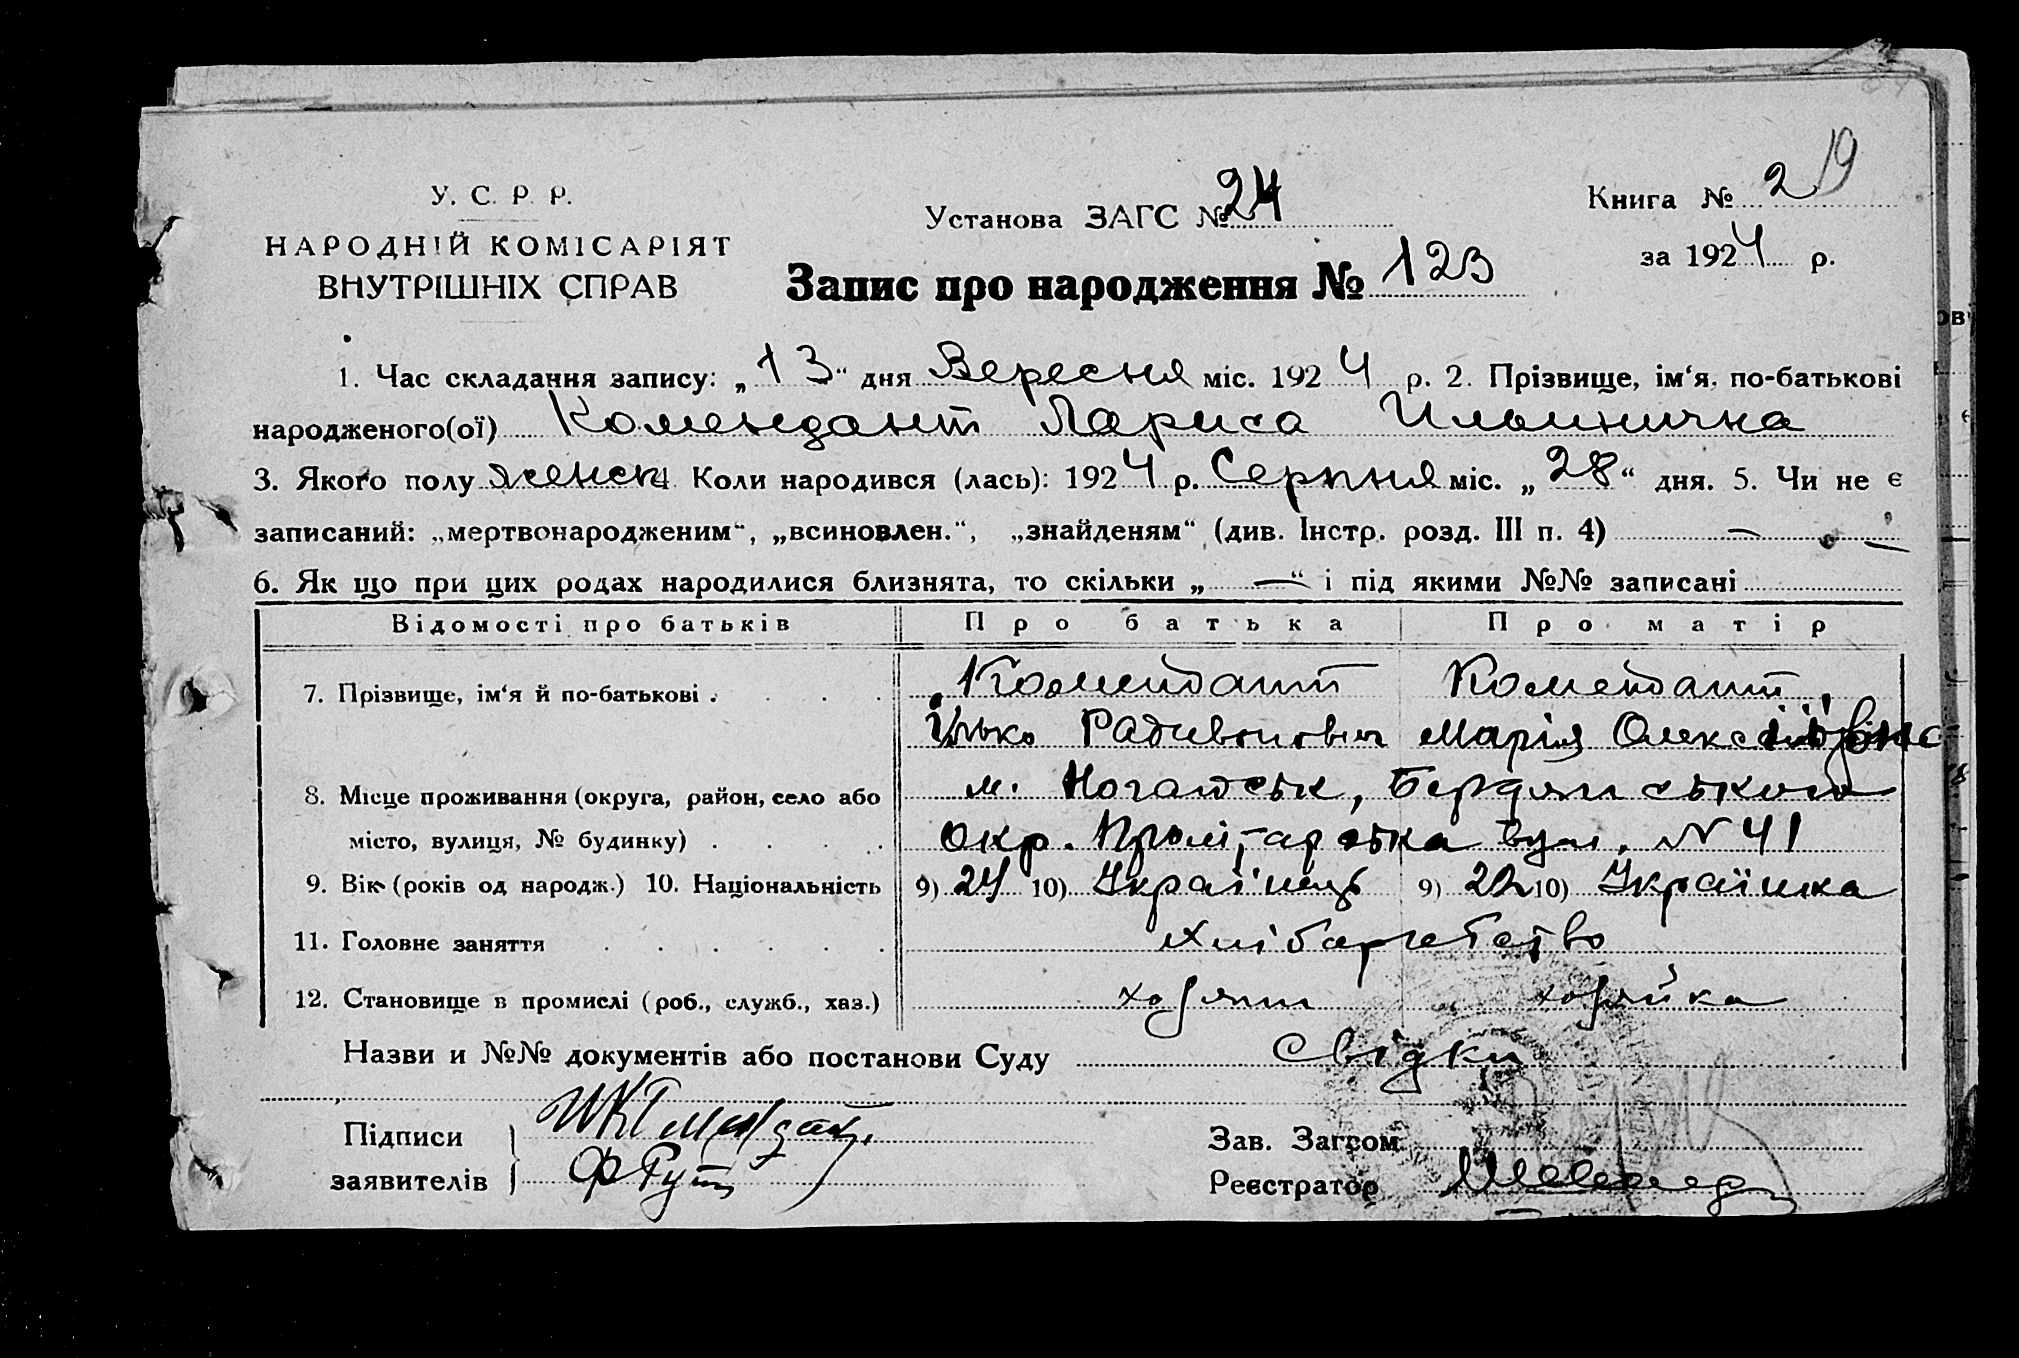 У. С. Р. Р.
НАРОДНІЙ КОМІСАРІЯТ
ВНУТРІШНІХ СПРАВ
Установа ЗАГС № 24
Запис про народження № 123
Книга № 2 19
за 1924 р.
1. Час складання запису: „13“ дня Вересня міс. 1924 р. 2. Прізвище, ім‘я, по-батькові
народженого(ої) Комендант Лариса Ильинична
3. Якого полу женск 4 Коли народився (лась): 1924 р. Серпня міс. „28“ дня. 5. Чи не є
записаний: „мертвонародженим“, „всиновлен.“, „знайденям“ (див. Інстр. розд. III п. 4) — —
6. Як що при цих родах народилися близнята, то скільки „—“ і під якими №№ записані
Відомості про батьків Про батька Про матір
7. Прізвище, ім‘я й по-батькові . Комендант Комендант
Ілько Радивонович Марія Олексіївна
8. Місце проживання (округа, район, село або м. Ногайськ, Бердянського
місто, вулиця, № будинку) окр. Пролетарська вул. N 41
9. Вік (років од народж.) 10. Національність 9) 24 10) Українець 9) 22 10) Українка
11. Головне заняття хліборобство
12. Становище в промислі (роб., служб., хаз.) хозяин хозяйка
Назви и №№ документів або постанови Суду Свідки
Підписи
заявителів
Зав. Загсом
Реєстратор